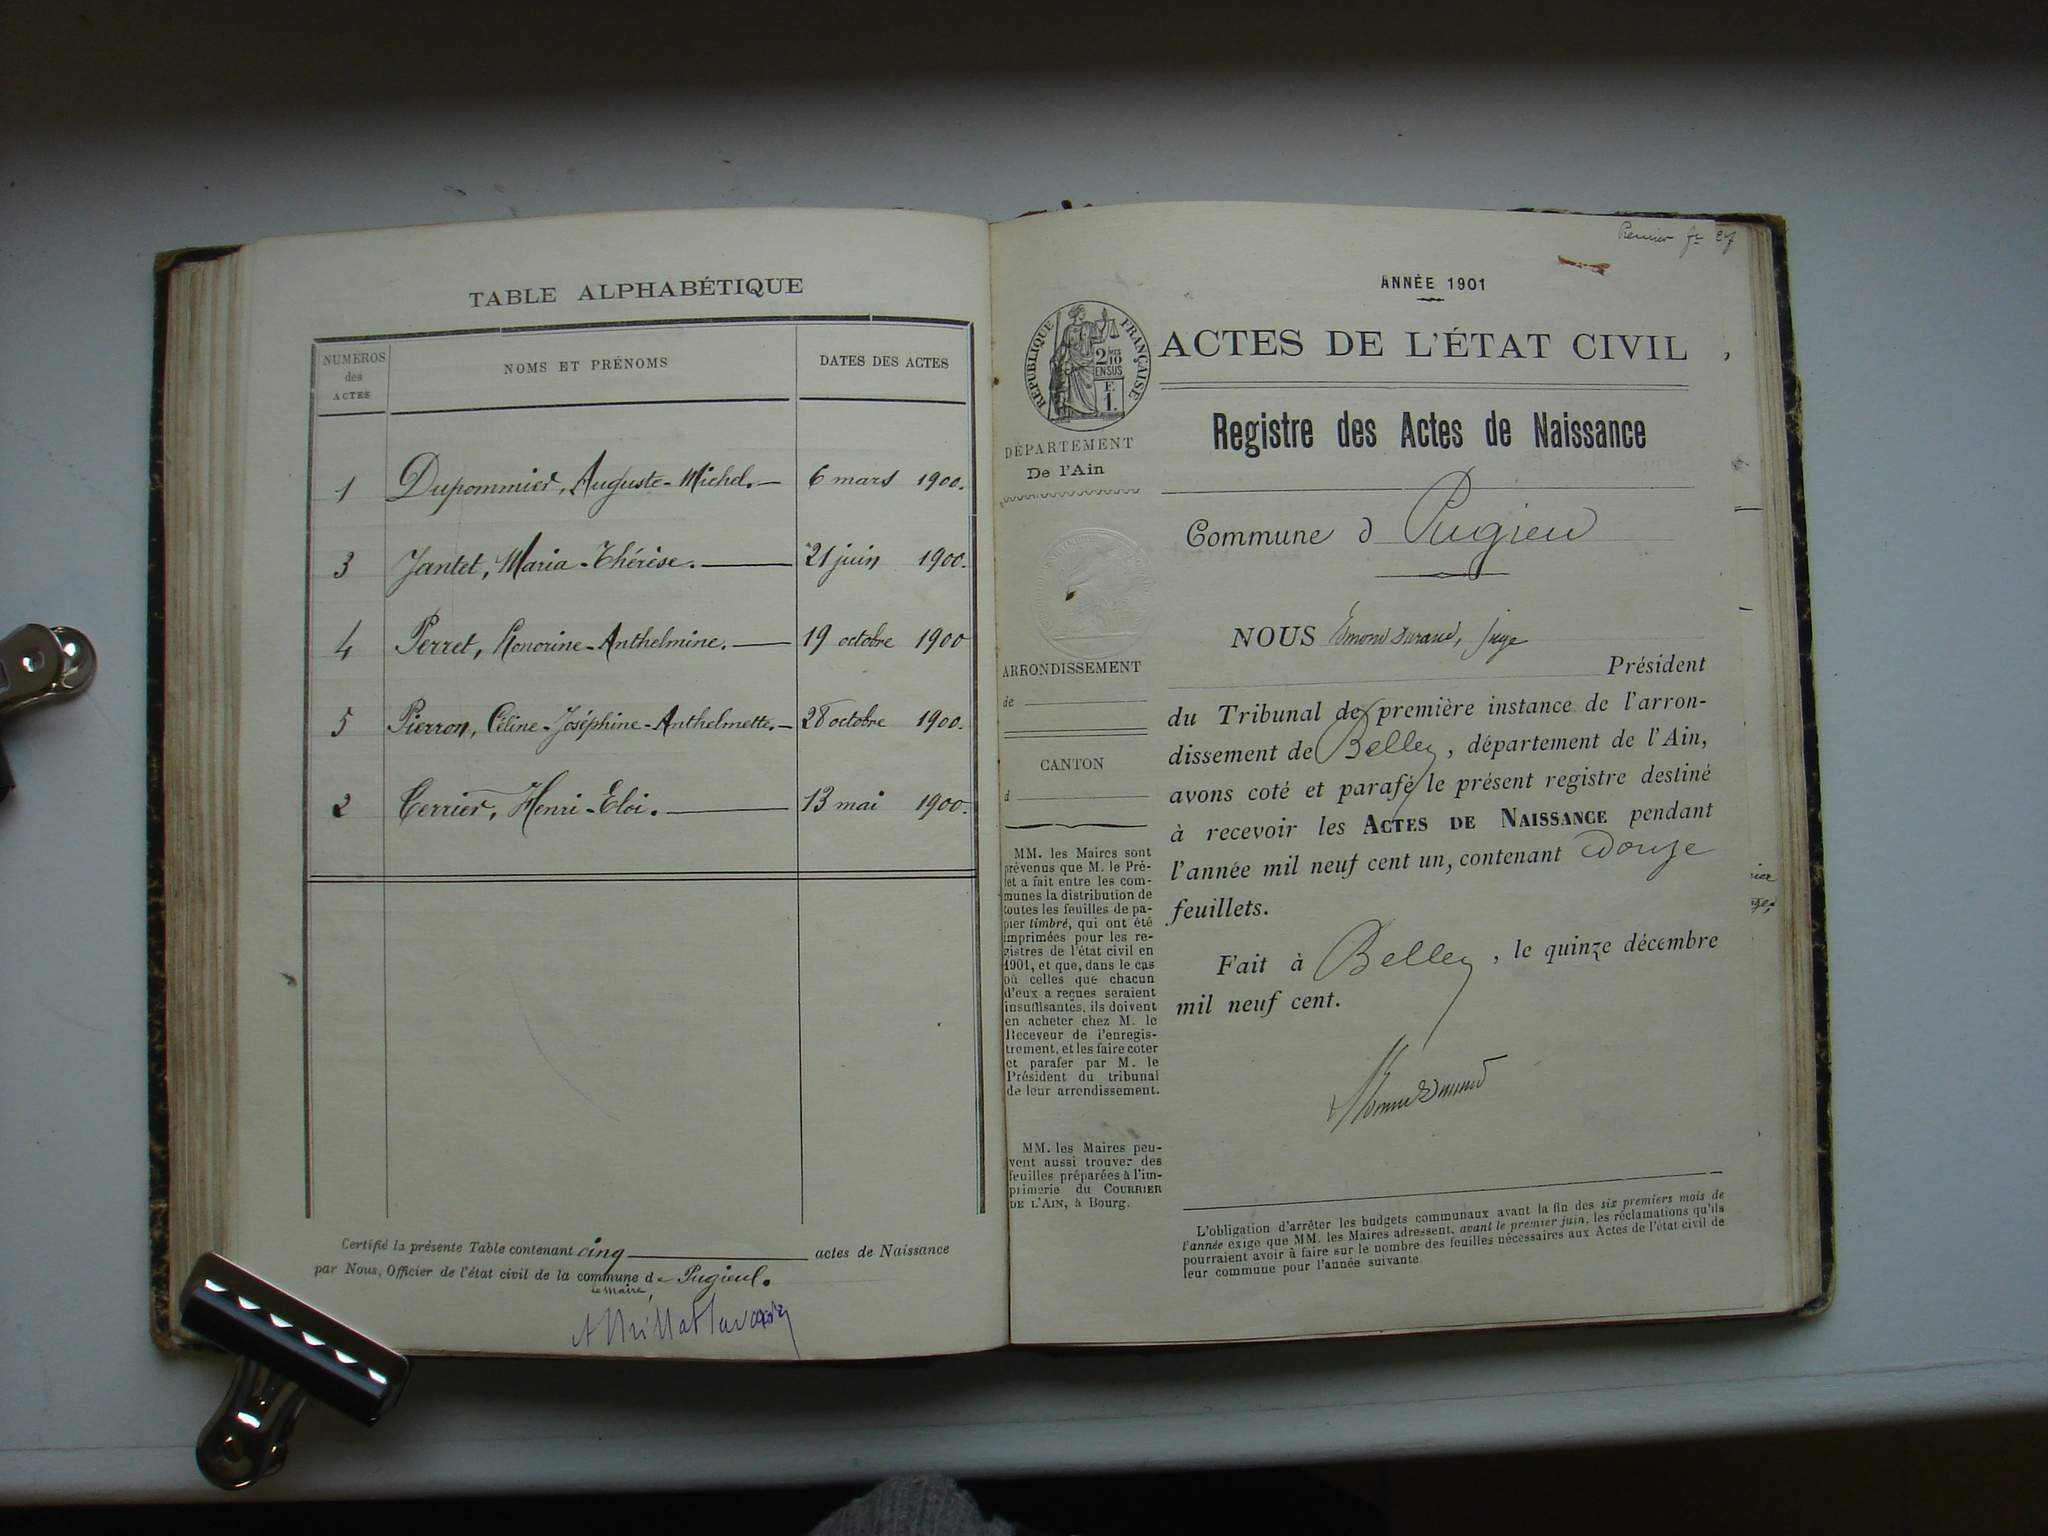 TABLE ALPHABÉTIQUE
NUMÉROS des ACTES NOMS ET PRÉNOMS DATES DES ACTES
1 Dupommier, Auguste-Michel. 6 mars 1900.
3 Jantet, Maria-Thérèse. 21 juin 1900.
4 Perret, Honorine-Anthelmine. 19 octobre 1900
5 Pierron, Céline-Joséphine-Anthelmette. 28 octobre 1900.
2 Terrier, Henri-Eloi. 13 mai 1900.
Certifié la présente Table contenant cinq actes de Naissance
par Nous, Officier de l'état civil de la commune de Pugieu.
Le Maire,
Premier
ANNÉE 1901
RÉPUBLIQUE FRANÇAISE
2/10 EN SUS
F. 1.
ACTES DE L'ÉTAT CIVIL
Registre des Actes de Naissance
DÉPARTEMENT
De l'Ain
Commune d Pugieu
ARRONDISSEMENT
de
CANTON
d
MM. les Maires sont
prévenus que M. le Pré-
fet a fait entre les com-
munes la distribution de
toutes les feuilles de pa-
pier timbré, qui ont été
imprimées pour les re-
gistres de l'état civil en
1901, et que, dans le cas
où celles que chacun
d'eux a reçues seraient
insuffisantes, ils doivent
en acheter chez M. le
Receveur de l'enregis-
trement, et les faire coter
et parafer par M. le
Président du tribunal
de leur arrondissement.
MM. les Maires peu-
vent aussi trouver des
feuilles préparées à l'im-
primerie du COURRIER
DE L'AIN, à Bourg.
NOUS Edmond Durand, Juge
Président
du Tribunal de première instance de l'arron-
dissement de Belley, département de l'Ain,
avons coté et parafé le présent registre destiné
à recevoir les ACTES DE NAISSANCE pendant
l'année mil neuf cent un, contenant douze
feuillets.
Fait à Belley, le quinze décembre
mil neuf cent.
L'obligation d'arrêter les budgets communaux avant la fin des six premiers mois de
l'année exige que MM. les Maires adressent, avant le premier juin, les réclamations qu'ils
pourraient avoir à faire sur le nombre des feuilles nécessaires aux Actes de l'état civil de
leur commune pour l'année suivante.